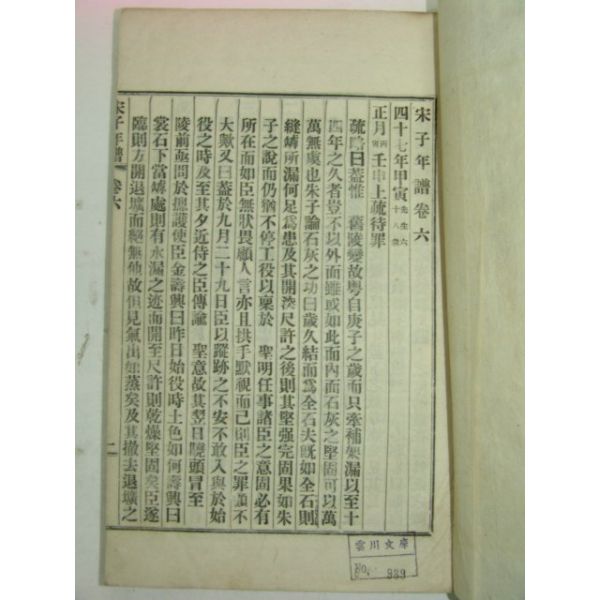 宋子年譜卷六
四十七年甲寅 先生六十八歲
正月丙寅壬申上疏待罪
疏略曰蓋惟 舊陵變故粤自庚子之歲而只牽補架漏以至十
四年之久者豈不以外面雖或如此而內面石灰之堅固可以萬
萬無虞也朱子論石灰之功曰歲久結而爲全石夫既如全石則
縫罅所漏何足爲患及其開深尺許之後則其堅强完固果如朱
子之說而仍猶不停工役以稟於 聖明任事諸臣之意固必有
所在而如臣無狀畏顧人言亦且拱手默視而已則臣之罪豈不
大歟又曰蓋於九月二十九日臣以蹤跡之不安不敢入與於始
役之時及至其夕近侍之臣傳諭 聖意故其翌日曉頭冒至
陵前亟問於摠護使臣金壽興曰昨日始役時土色如何壽興曰
裳石下當罅處則有水漏之迹而開至尺許則乾燥堅固矣臣遂
臨則方開退壙而絕無他故但見氣出如蒸矣及其撤去退壙之
宋子年譜 卷六 二
雲川文庫
No. 939